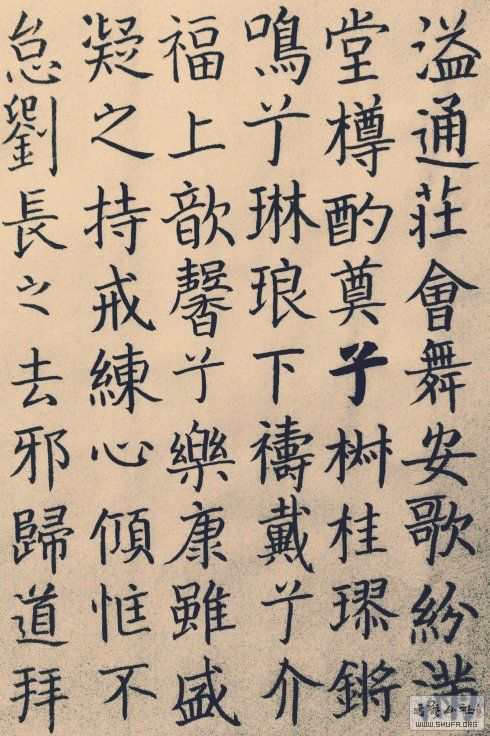 溢通莊會舞安歌紛滿
堂樽酌奠兮椒桂璆鏘
鳴兮琳琅下禱戴兮介
福上歆馨兮樂康雖盛
凝之持戒練心傾恇不
怠劉長之去邪歸道拜
WWW.SHUFA.ORG